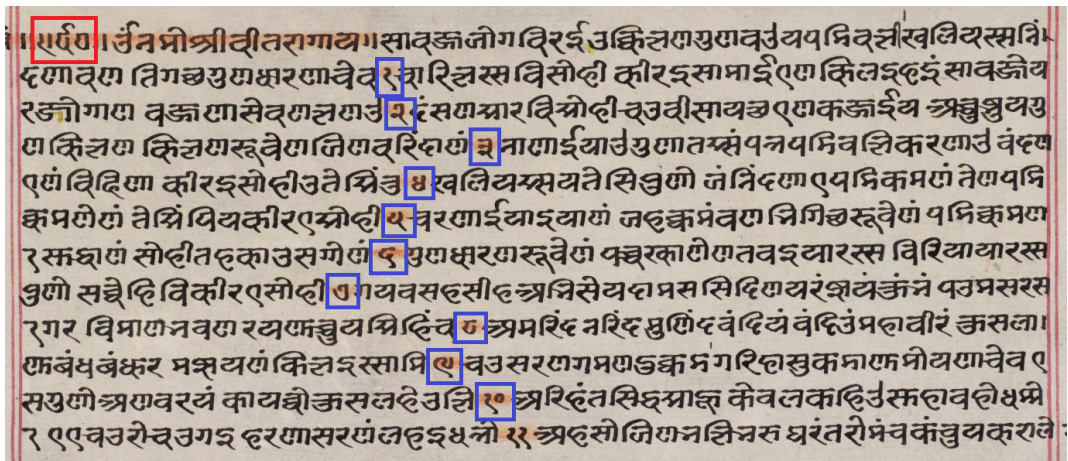 ॥ र्द० ॥ उँनमो श्रीवीतरागाय। सावज्जजोगविरई उक्कित्तणगुणवउयपडिवत्ती खलियस्सनिं।
दणावण तिगच्छगुणधारणाचेव १ चारित्तस्स विसोही कीरइसामाईएण किलइहइं सावज्जेय
रज्जोगाण वज्जणासेवणत्तणउ २ दंसणयारविसोही चउवीसायच्छएणकज्जईय अच्चब्भुयगु
णकित्तण कित्तणरूवेणजिणवरिंदाणं ३ नाणाईयाउगुणातस्संपन्नपडिवत्तिकरणाउ वंदण
एणंविहिणा कीरइसोहीउतेसिंतु ४ खलियस्सयतेसिपुणो जंनिंदणाएपडिकमणं तेणपडि
क्कमणेणं तेसिंपियकीरएसोही ५ चरणाईयाइयाणं जहक्कमंवणतिगिच्छरूवेणं पडिक्कमण
रसद्धाणं सोहीतहकाउसग्गेणं ६ गुणधारणरूवेणं पच्चरकाणेणतवइयारस्स विरियायारस्स
पुणो सव्वेहिविकीरएसोही ७ गयवसहसीहअभिसेयदामससिदिणयरंझयंकुंभं पउमसरस
रगर विमाणभवणरयणच्चुयसिहिंच ८ अमरिंदनरिंदमुणिंदवंदियं वंदिउंमहावीरं कुसला।
णुबंधबंधुर मझयणंकित्तइस्सामि ९ चउसरणगमणदुक्कडगरिहासुकडाणुमोयणाचेव ए
सगुणोअणवरयं कायव्वोकुसलहेउत्ति १० अरिहंतसिद्धसाहू केवलकहिउसुहावहोधम्मो
ए एएचउरोचउगइहरणासरणंलहइधन्नो ११ अहसोजिणभत्तिभरु